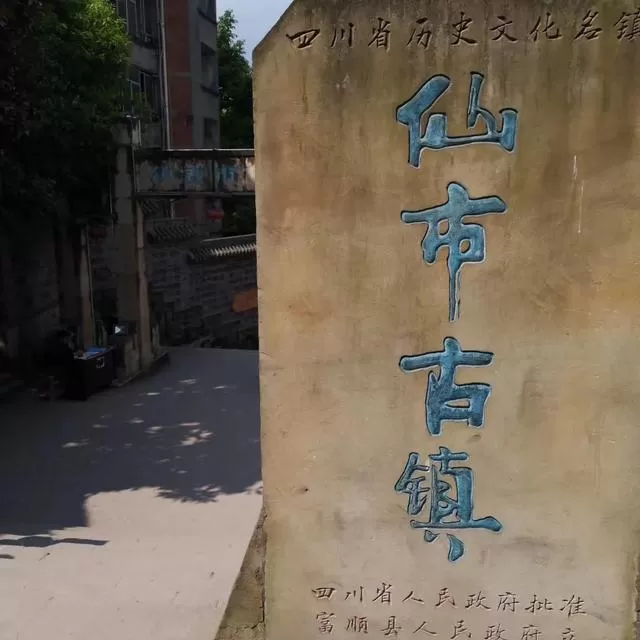 四川省历史文化名镇
仙市古镇
四川省人民政府批准
富顺县人民政府立